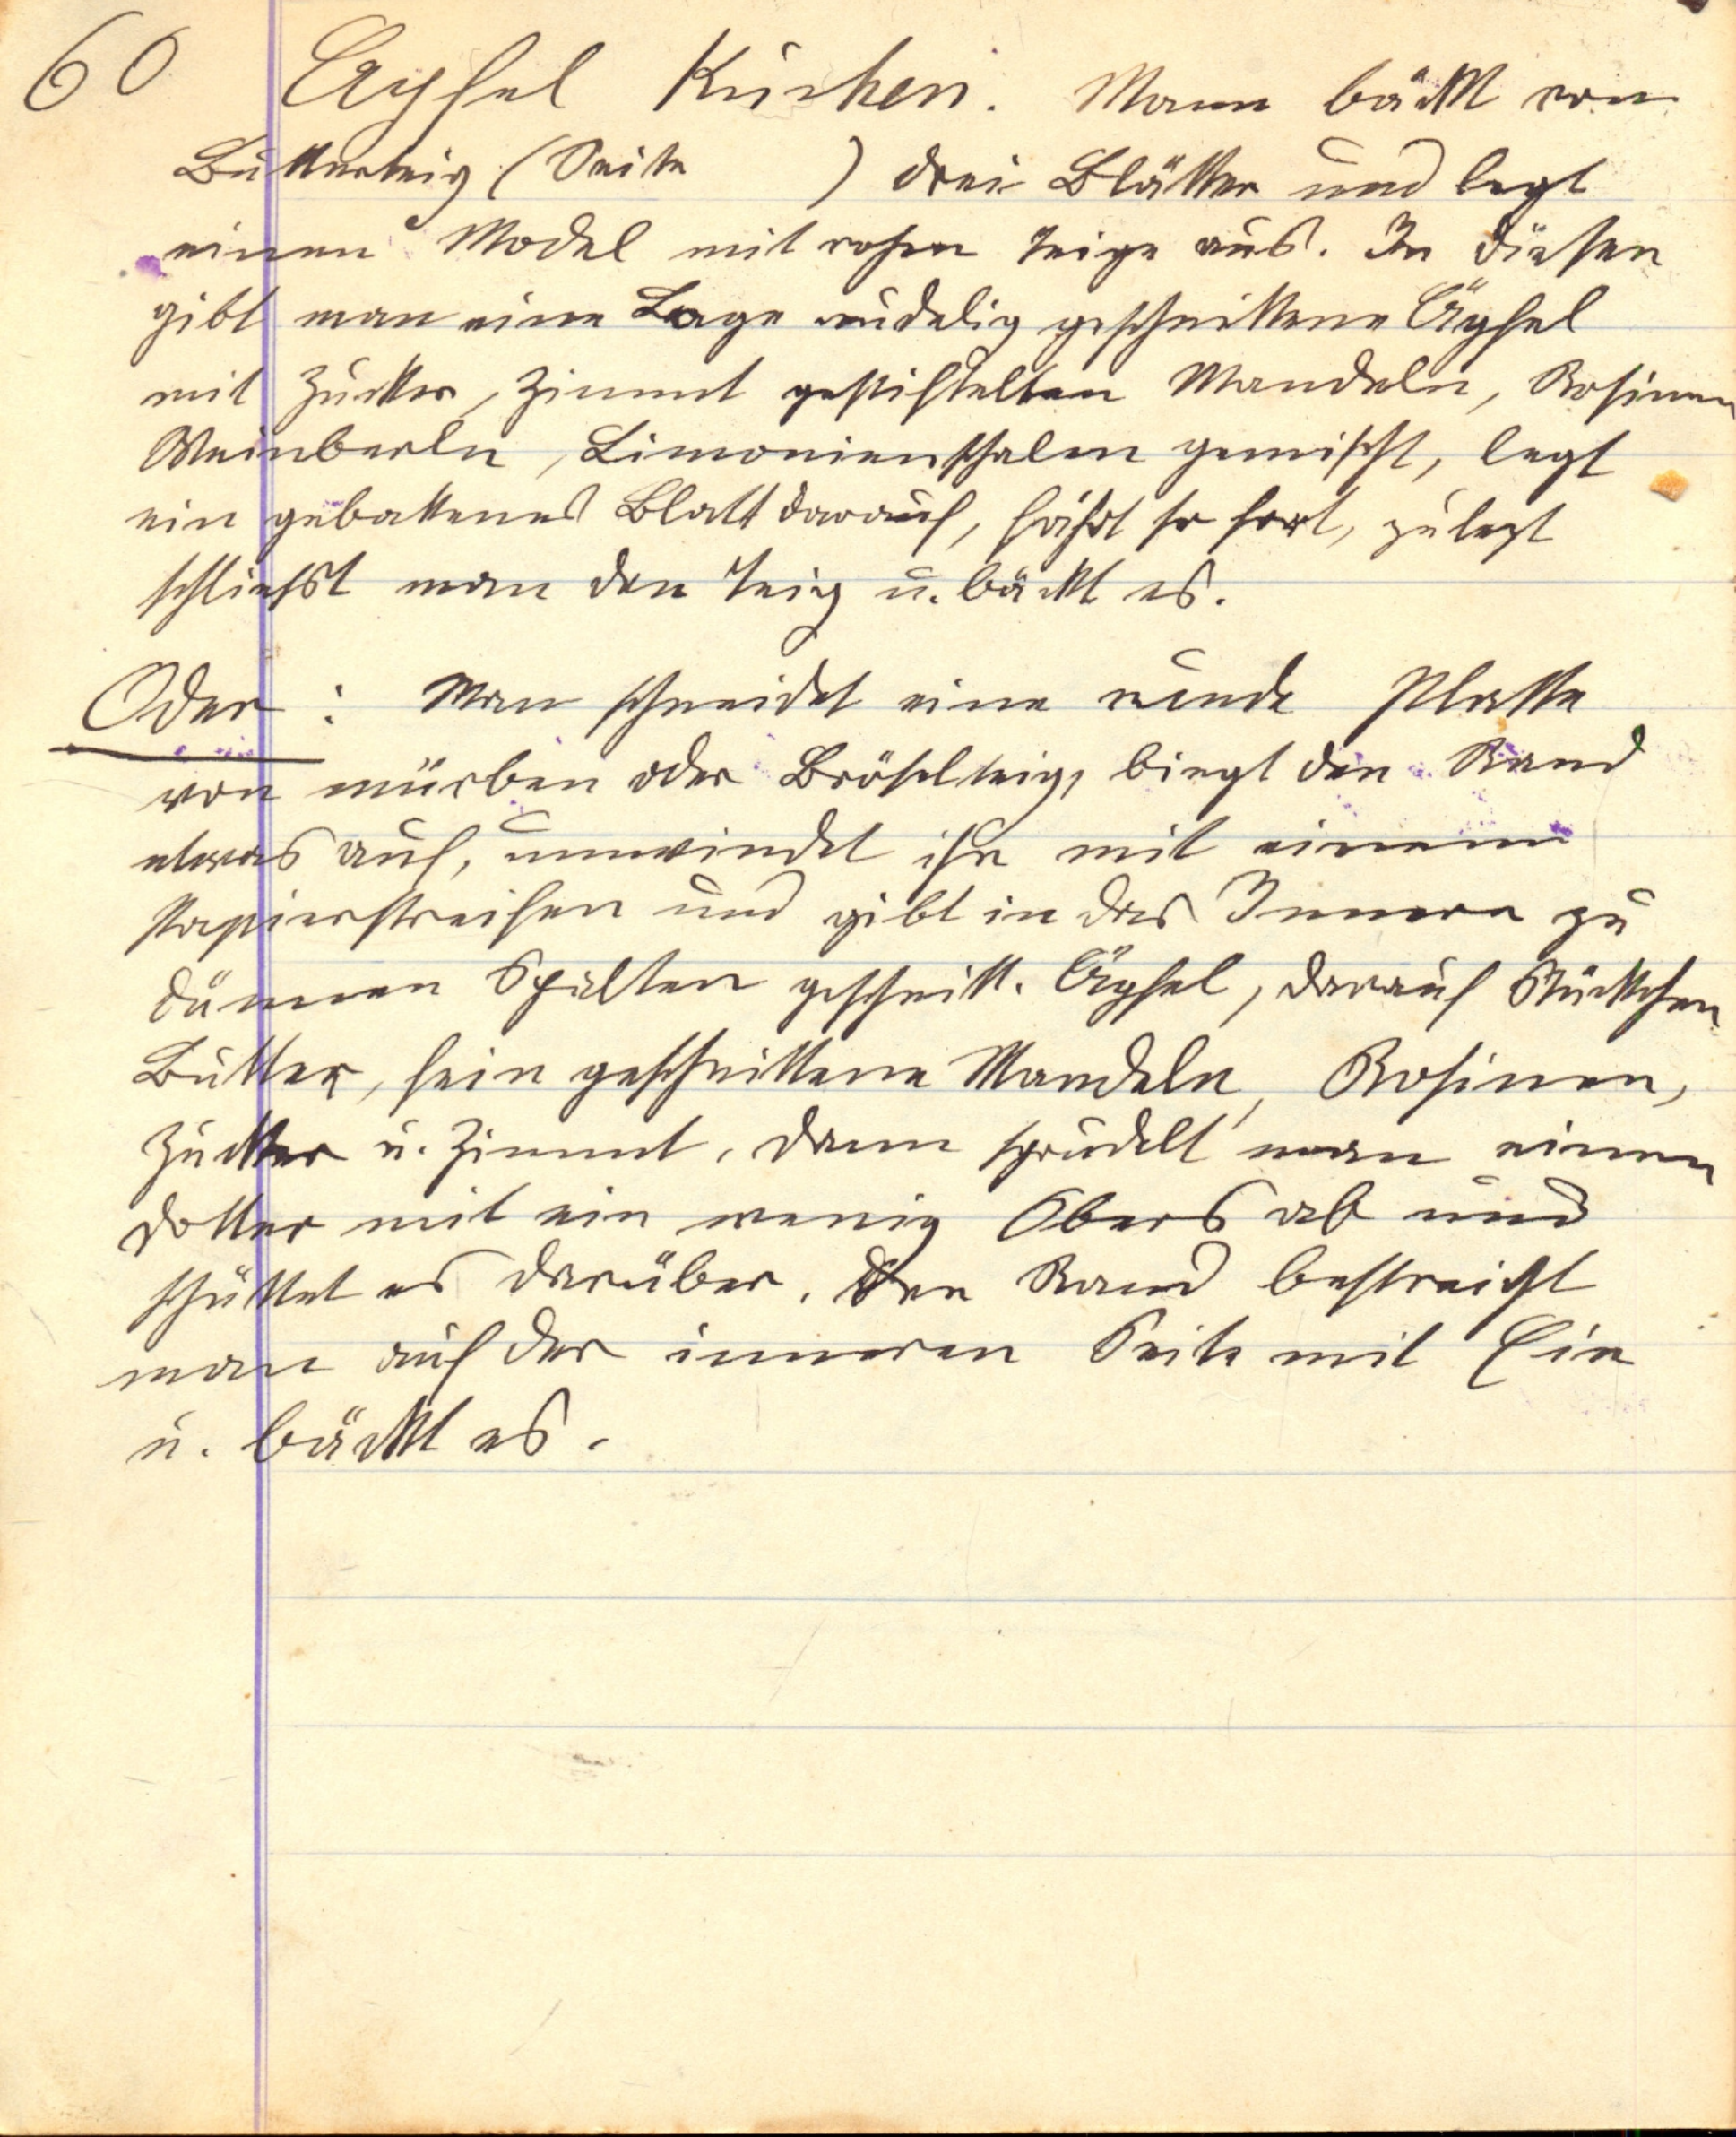 60 Äpfel Kuchen. Mann bäckt von
Butterteig (Seite ) drei Blätter und legt
einen Model mit rohen Teige aus. In diesen
gibt man eine Lage nudelig geschnittene Äpfel
mit Zucker, Zimmt gestiftelten Mandeln, Rosinen
Weinberln, Limonienschalen gemischt, legt
ein gebackenes Blatt darauf, fährt so fort, zulezt
schließt man den Teig u. bäckt es.
Oder : Man schneidet eine runde Platte
von mürben oder Bröselteig, biegt den Rand
etwas auf, umwindet ihn mit einem
Papierstreifen und gibt in das Innere zu
dünnen Spalten geschnitt. Äpfel, darauf Stückchen
Butter, fein geschnittene Mandeln, Rosinen,
Zucker u. Zimmt, dann sprudelt man einen
Dotter mit ein wenig Obers ab und
schüttet es darüber. Den Rand bestreicht
man auf der inneren Seite mit Ein
u. bäckt es.